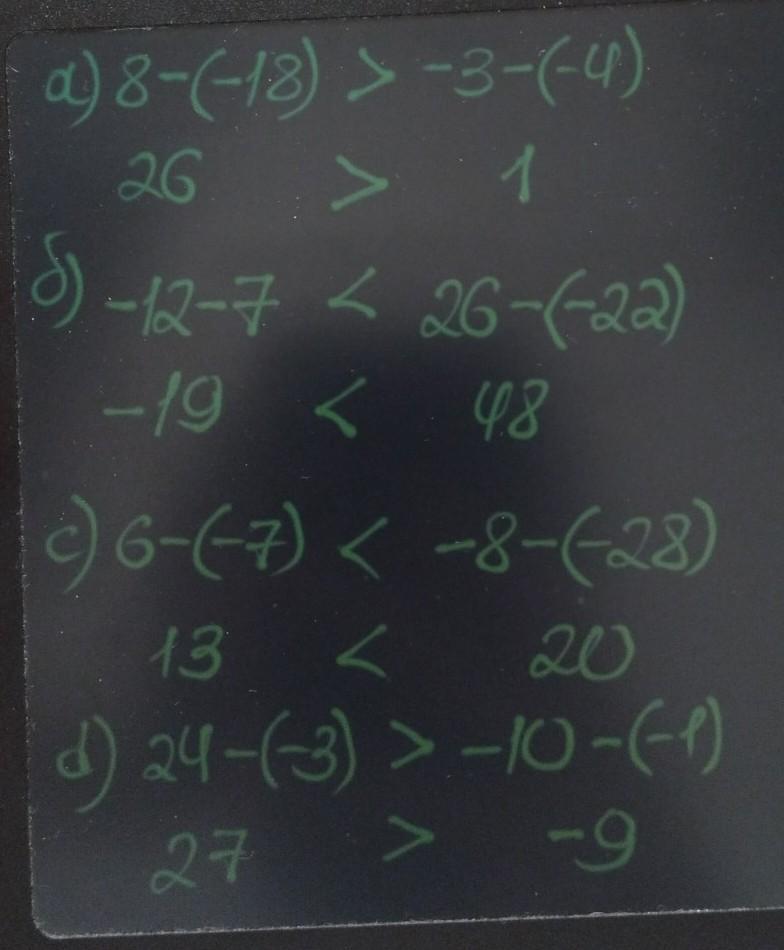 a) 8-(-18) > -3-(-4)
26 > 1
б) -12-7 < 26-(-22)
-19 < 48
c) 6-(-7) < -8-(-28)
13 < 20
d) 24-(-3) > -10-(-1)
27 > -9